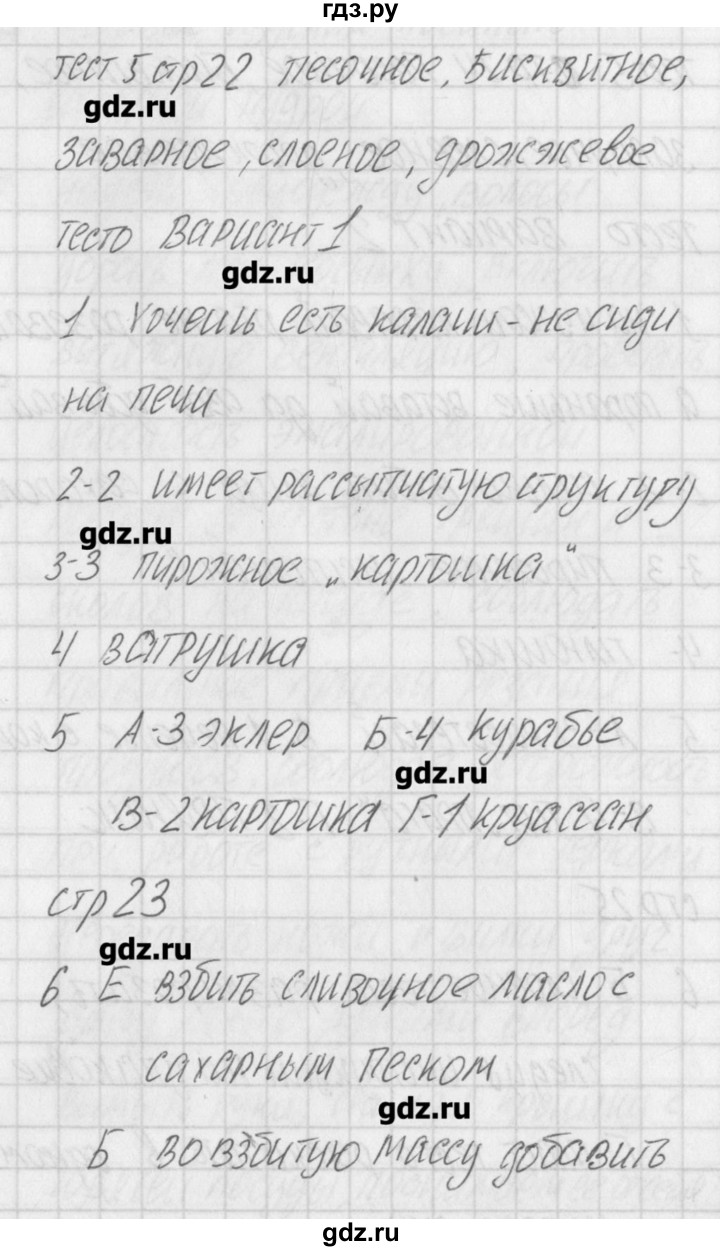 гдз.ру
тест 5 стр 22 песочное, бисквитное,
gdz.ru
заварное, слоеное, дрожжевое
тесто Вариант 1
gdz.ru
1 Хочешь есть калачи - не сиди
на печи
2-2 имеет рассыпчатую структуру
gdz.ru
3-3 пирожное „картошка“
4 ватрушка
5 А-3 эклер Б-4 курабье
gdz.ru
В-2 картошка Г-1 круассан
стр 23
gdz.ru
6 Е взбить сливочное масло с
сахарным песком
gdz.ru
Б во взбитую массу добавить
gdz.ru